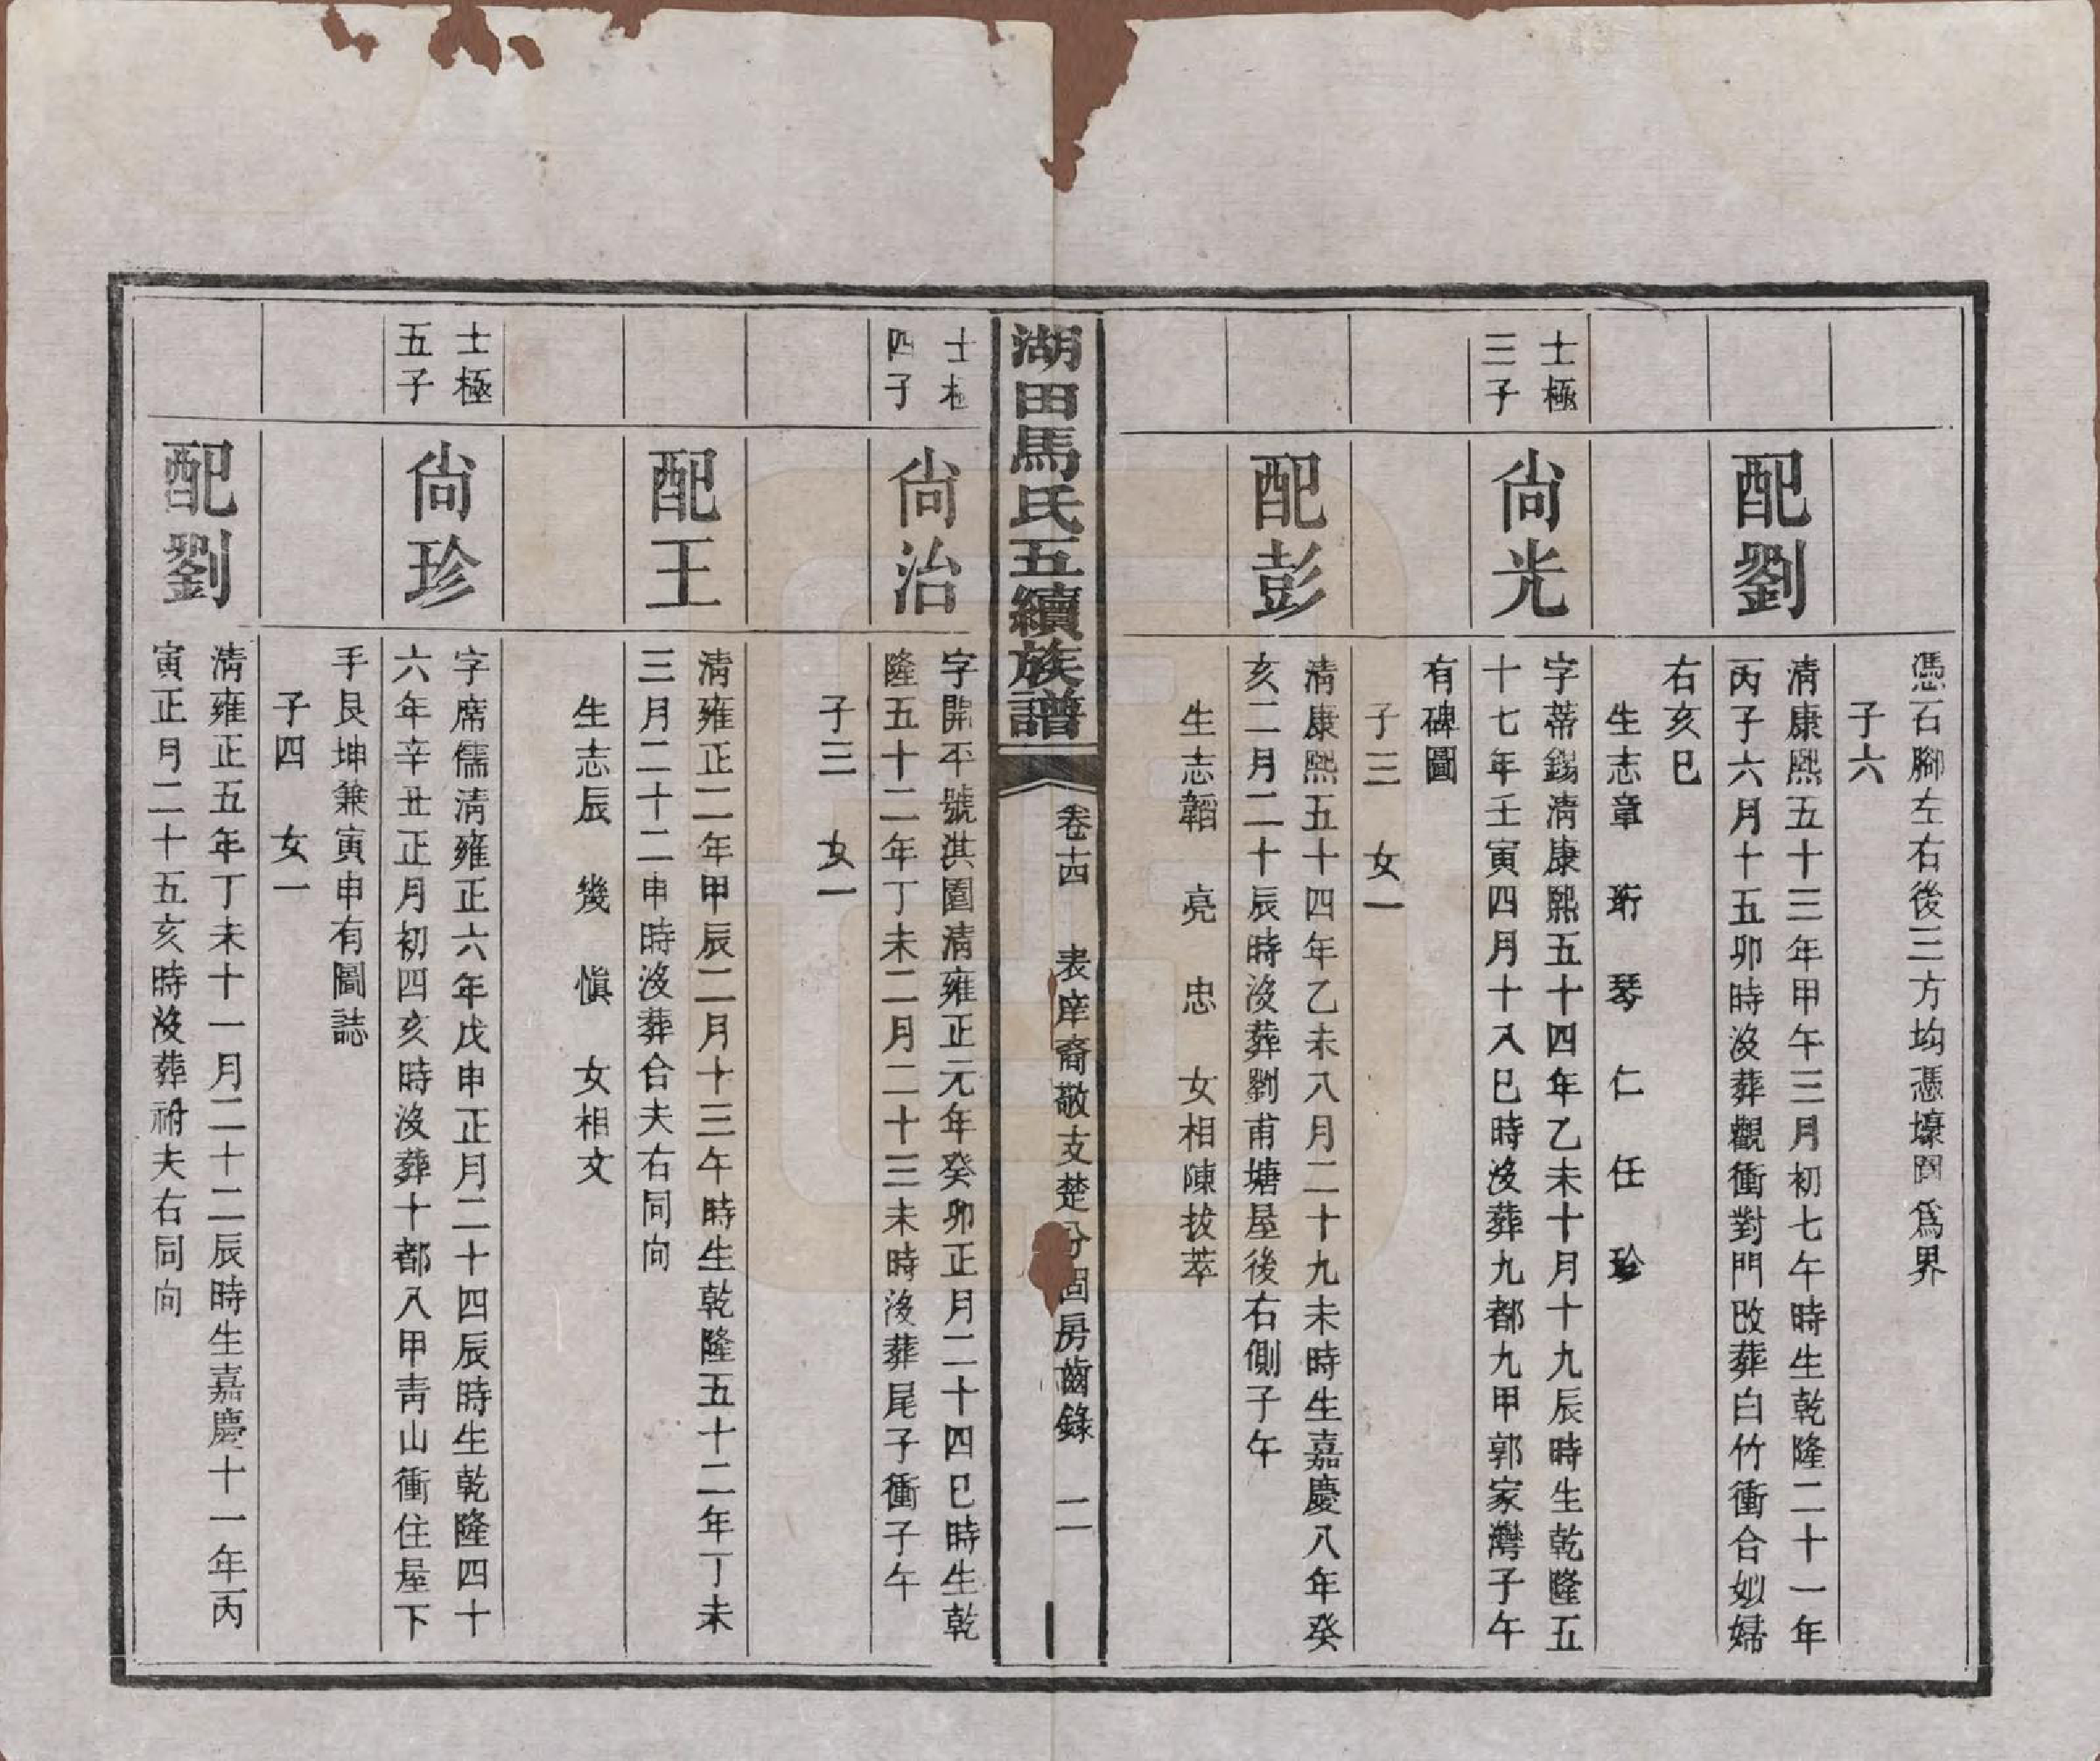 憑石腳左右後三方均憑壕圳爲界
子六
配劉
淸康熙五十三年甲午三月初七午時生乾隆二十一年
丙子六月十五卯時沒葬觀衝對門改葬白竹衝合妣婦
右亥巳
生志章 珩 琴 仁 任 珍
士極
三子
尙光
字蒂錫淸康熙五十四年乙未十月十九辰時生乾隆五
十七年壬寅四月十八巳時沒葬九都九甲郭家灣子午
有碑圖
子三 女一
配彭
淸康熙五十四年乙未八月二十九未時生嘉慶八年癸
亥二月二十辰時沒葬劉甫塘屋後右側子午
生志韜 亮 忠 女相陳拔萃
湖田馬氏五續族譜
卷十四 表庠裔敬支楚分固房齒錄 二
士極
四子
尙治
字開平號淇園淸雍正元年癸卯正月二十四巳時生乾
隆五十二年丁未二月二十三未時沒葬尾子衝子午
子三 女一
配王
淸雍正二年甲辰二月十三午時生乾隆五十二年丁未
三月二十二申時沒葬合夫右同向
生志辰 幾 愼 女相文
士極
五子
尙珍
字席儒淸雍正六年戊申正月二十四辰時生乾隆四十
六年辛丑正月初四亥時沒葬十都八甲靑山衝住屋下
手艮坤兼寅申有圖誌
子四 女一
配劉
淸雍正五年丁未十一月二十二辰時生嘉慶十一年丙
寅正月二十五亥時沒葬祔夫右同向